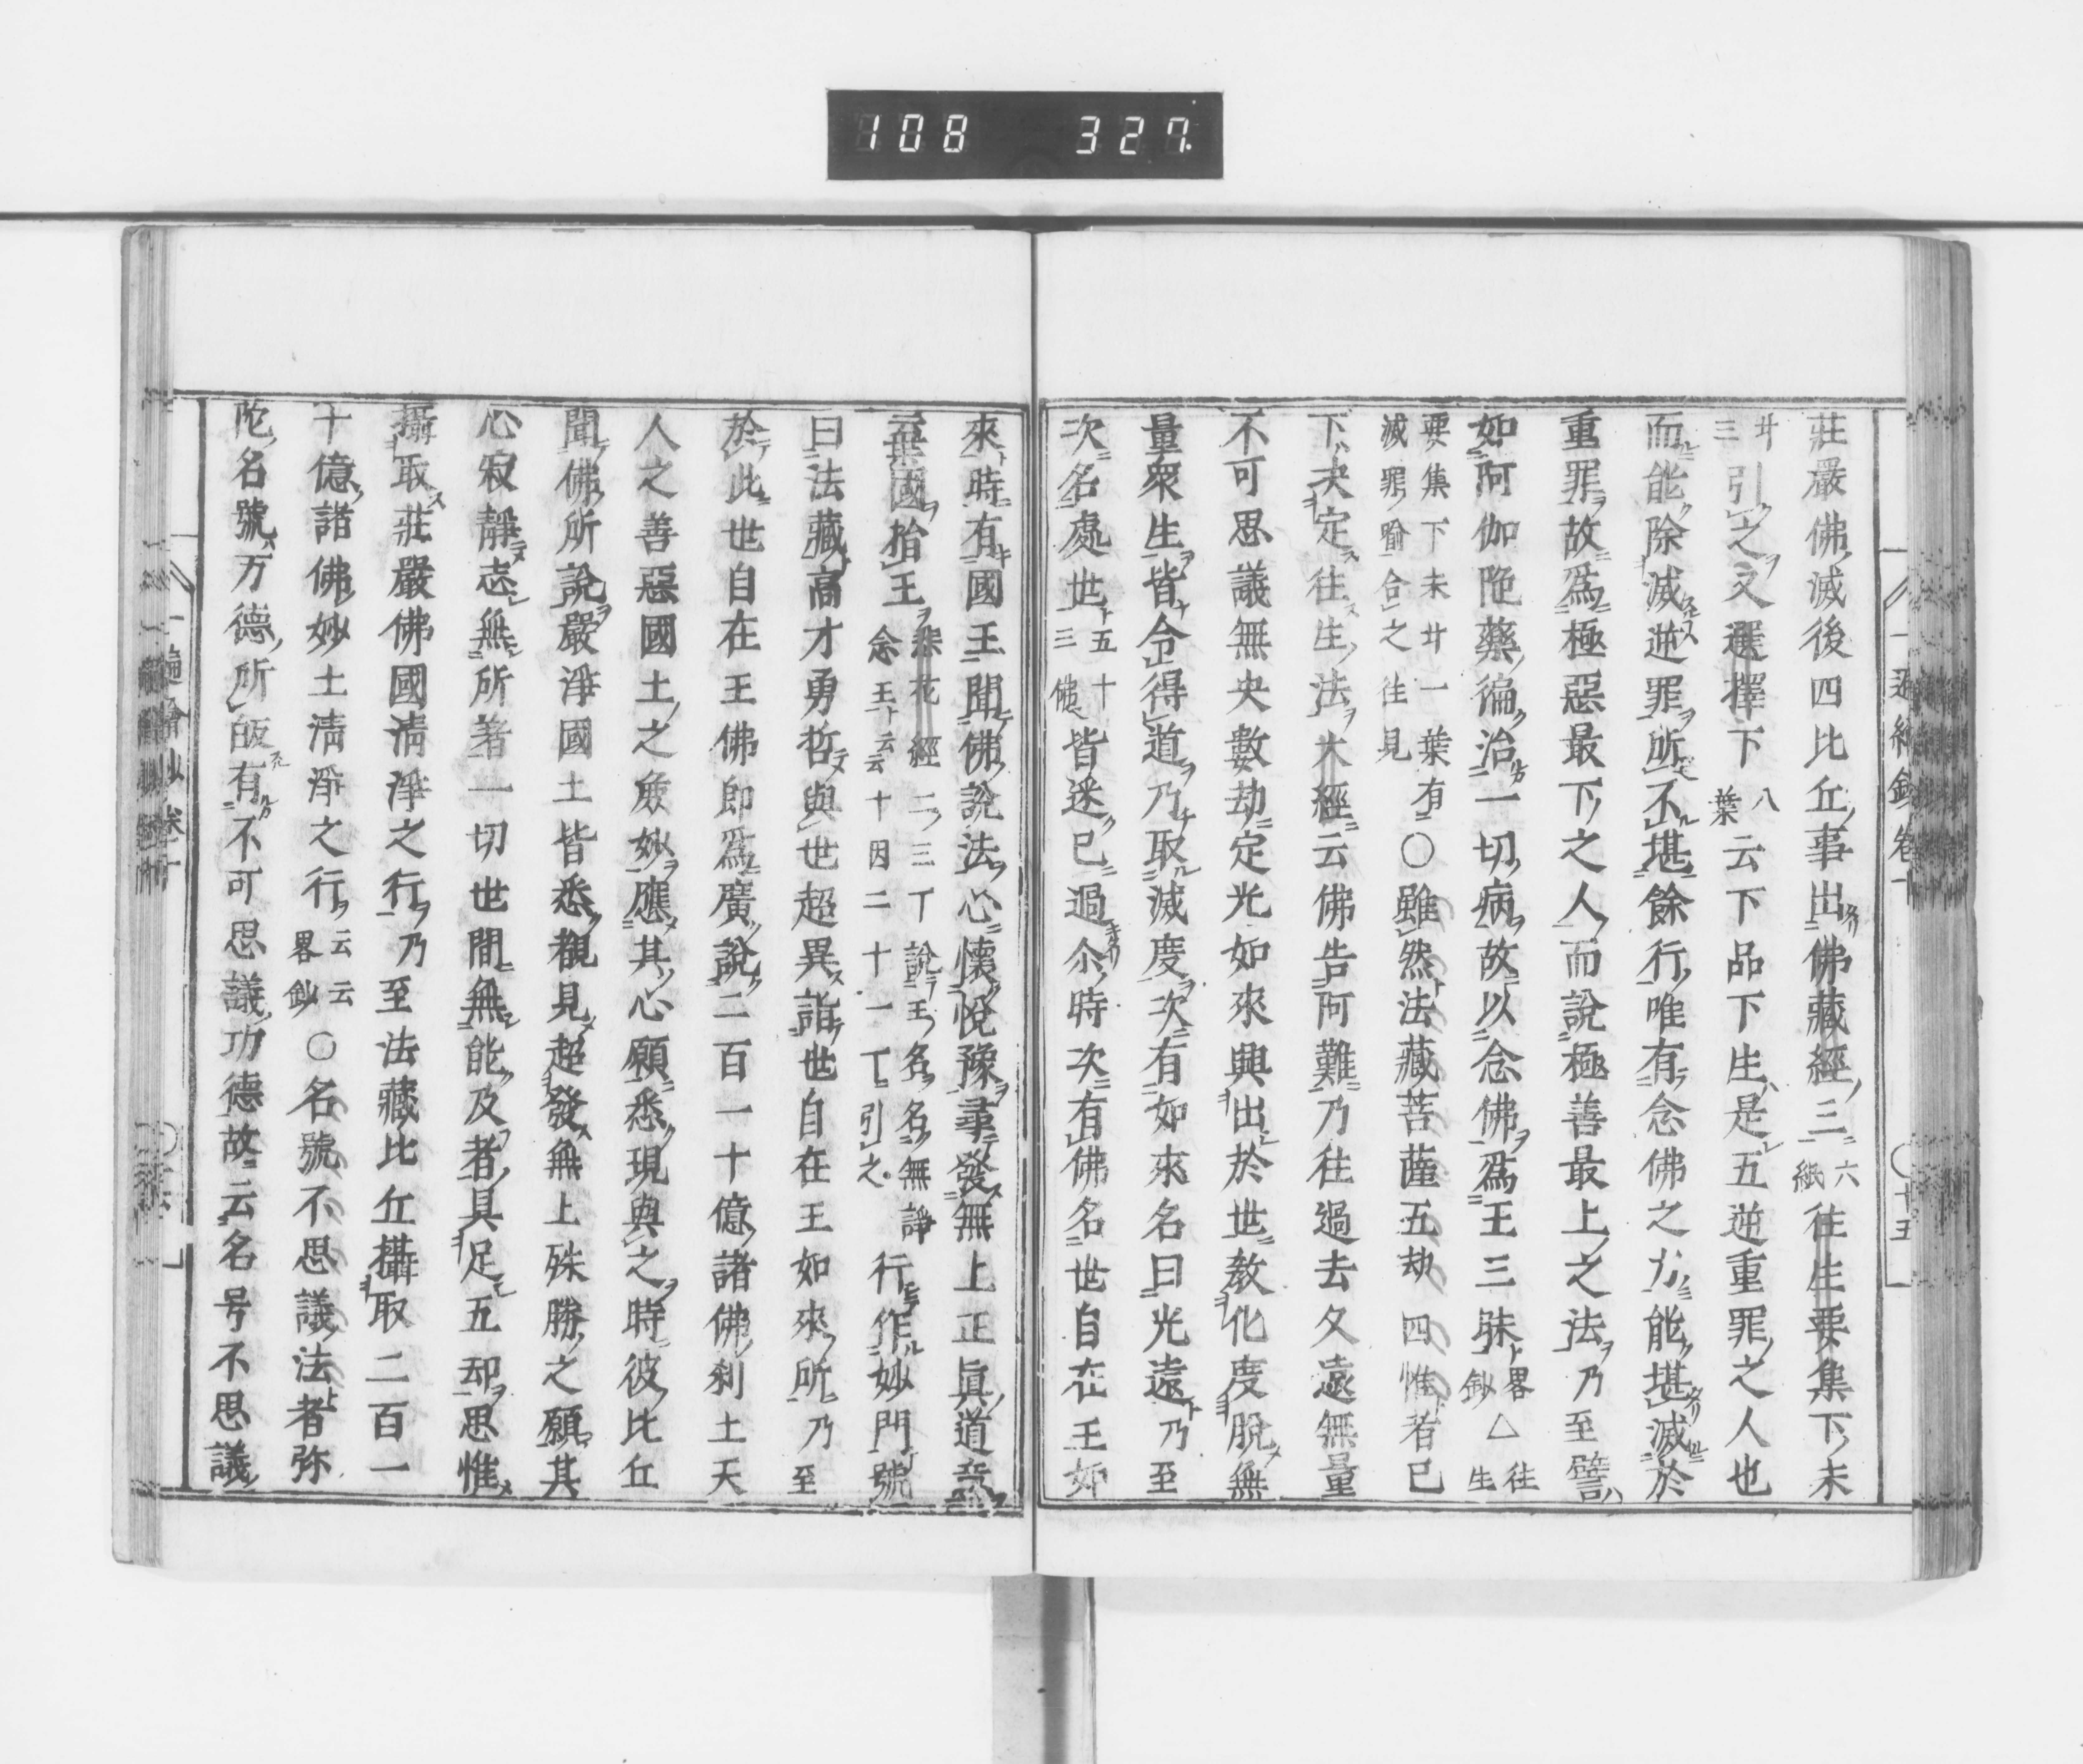 108 327
莊嚴佛滅後四比丘事出佛藏經三六紙往生要集下末
廿三引之文選擇下八葉云下品下生是五逆重罪之人也
而能除滅逆罪所不堪餘行唯有念佛之力能堪滅於
重罪故爲極惡最下之人而說極善最上之法乃至譬
如阿伽陀藥徧治一切病故以念佛爲王三昧畧鈔△往生
要集下末廿一葉有滅罪喻合之往見○雖然法藏菩薩五劫四惟若已
下決定往生法大經云佛告阿難乃往過去久遠無量
不可思議無央數劫定光如來興出於世教化度脫無
量衆生皆令得道乃取滅度次有如來名曰光遠乃至
次名處世十五三十佛皆逐已過尒時次有佛名世自在王如
來時有國王聞佛說法心懷悅豫尋發無上正眞道意
棄國捨王悲花經二三丁說王名名無諍念王云云十因二十一丁引之行作妙門號
曰法藏高才勇哲與世超異詣世自在王如來所乃至
於此世自在王佛即爲廣說二百一十億諸佛刹土天
人之善惡國土之麁妙應其心願悉現與之時彼比丘
聞佛所說嚴淨國土皆悉覩見超發無上殊勝之願其
心寂靜志無所著一切世間無能及者具足五劫思惟
攝取莊嚴佛國淸淨之行乃至法藏比丘攝取二百一
十億諸佛妙土淸淨之行云云畧鈔○名號不思議法者弥
陀名號万德所皈有不可思議功德故云名号不思議